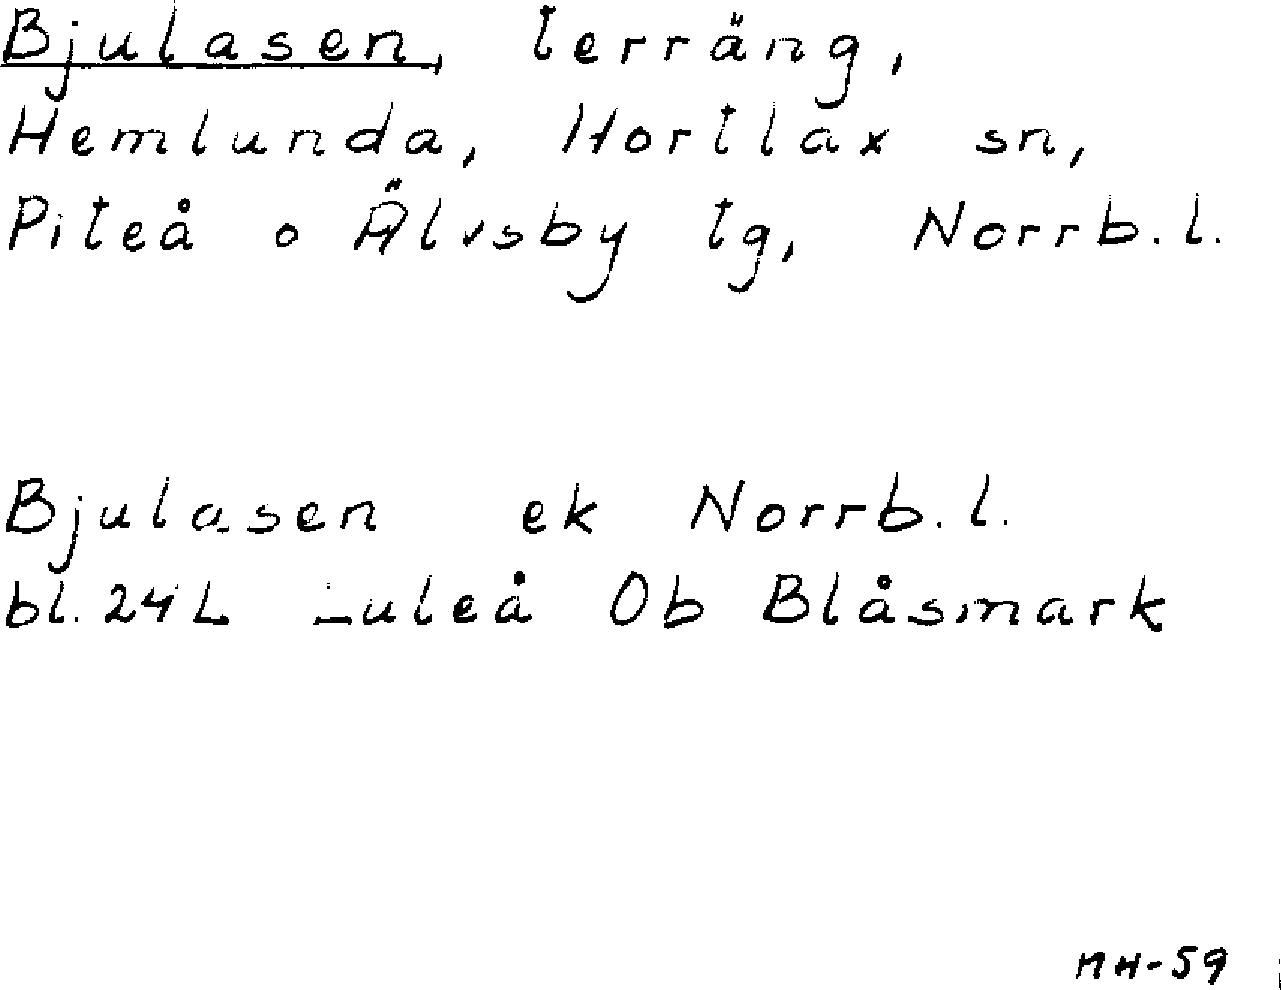 Bjulasen, terräng,
Hemlunda, Hortlax sn,
Piteå o Älvsby tg, Norrb.l.
Bjulasen ek Norrb.l.
bl. 24 L Luleå Ob Blåsmark
MH-59